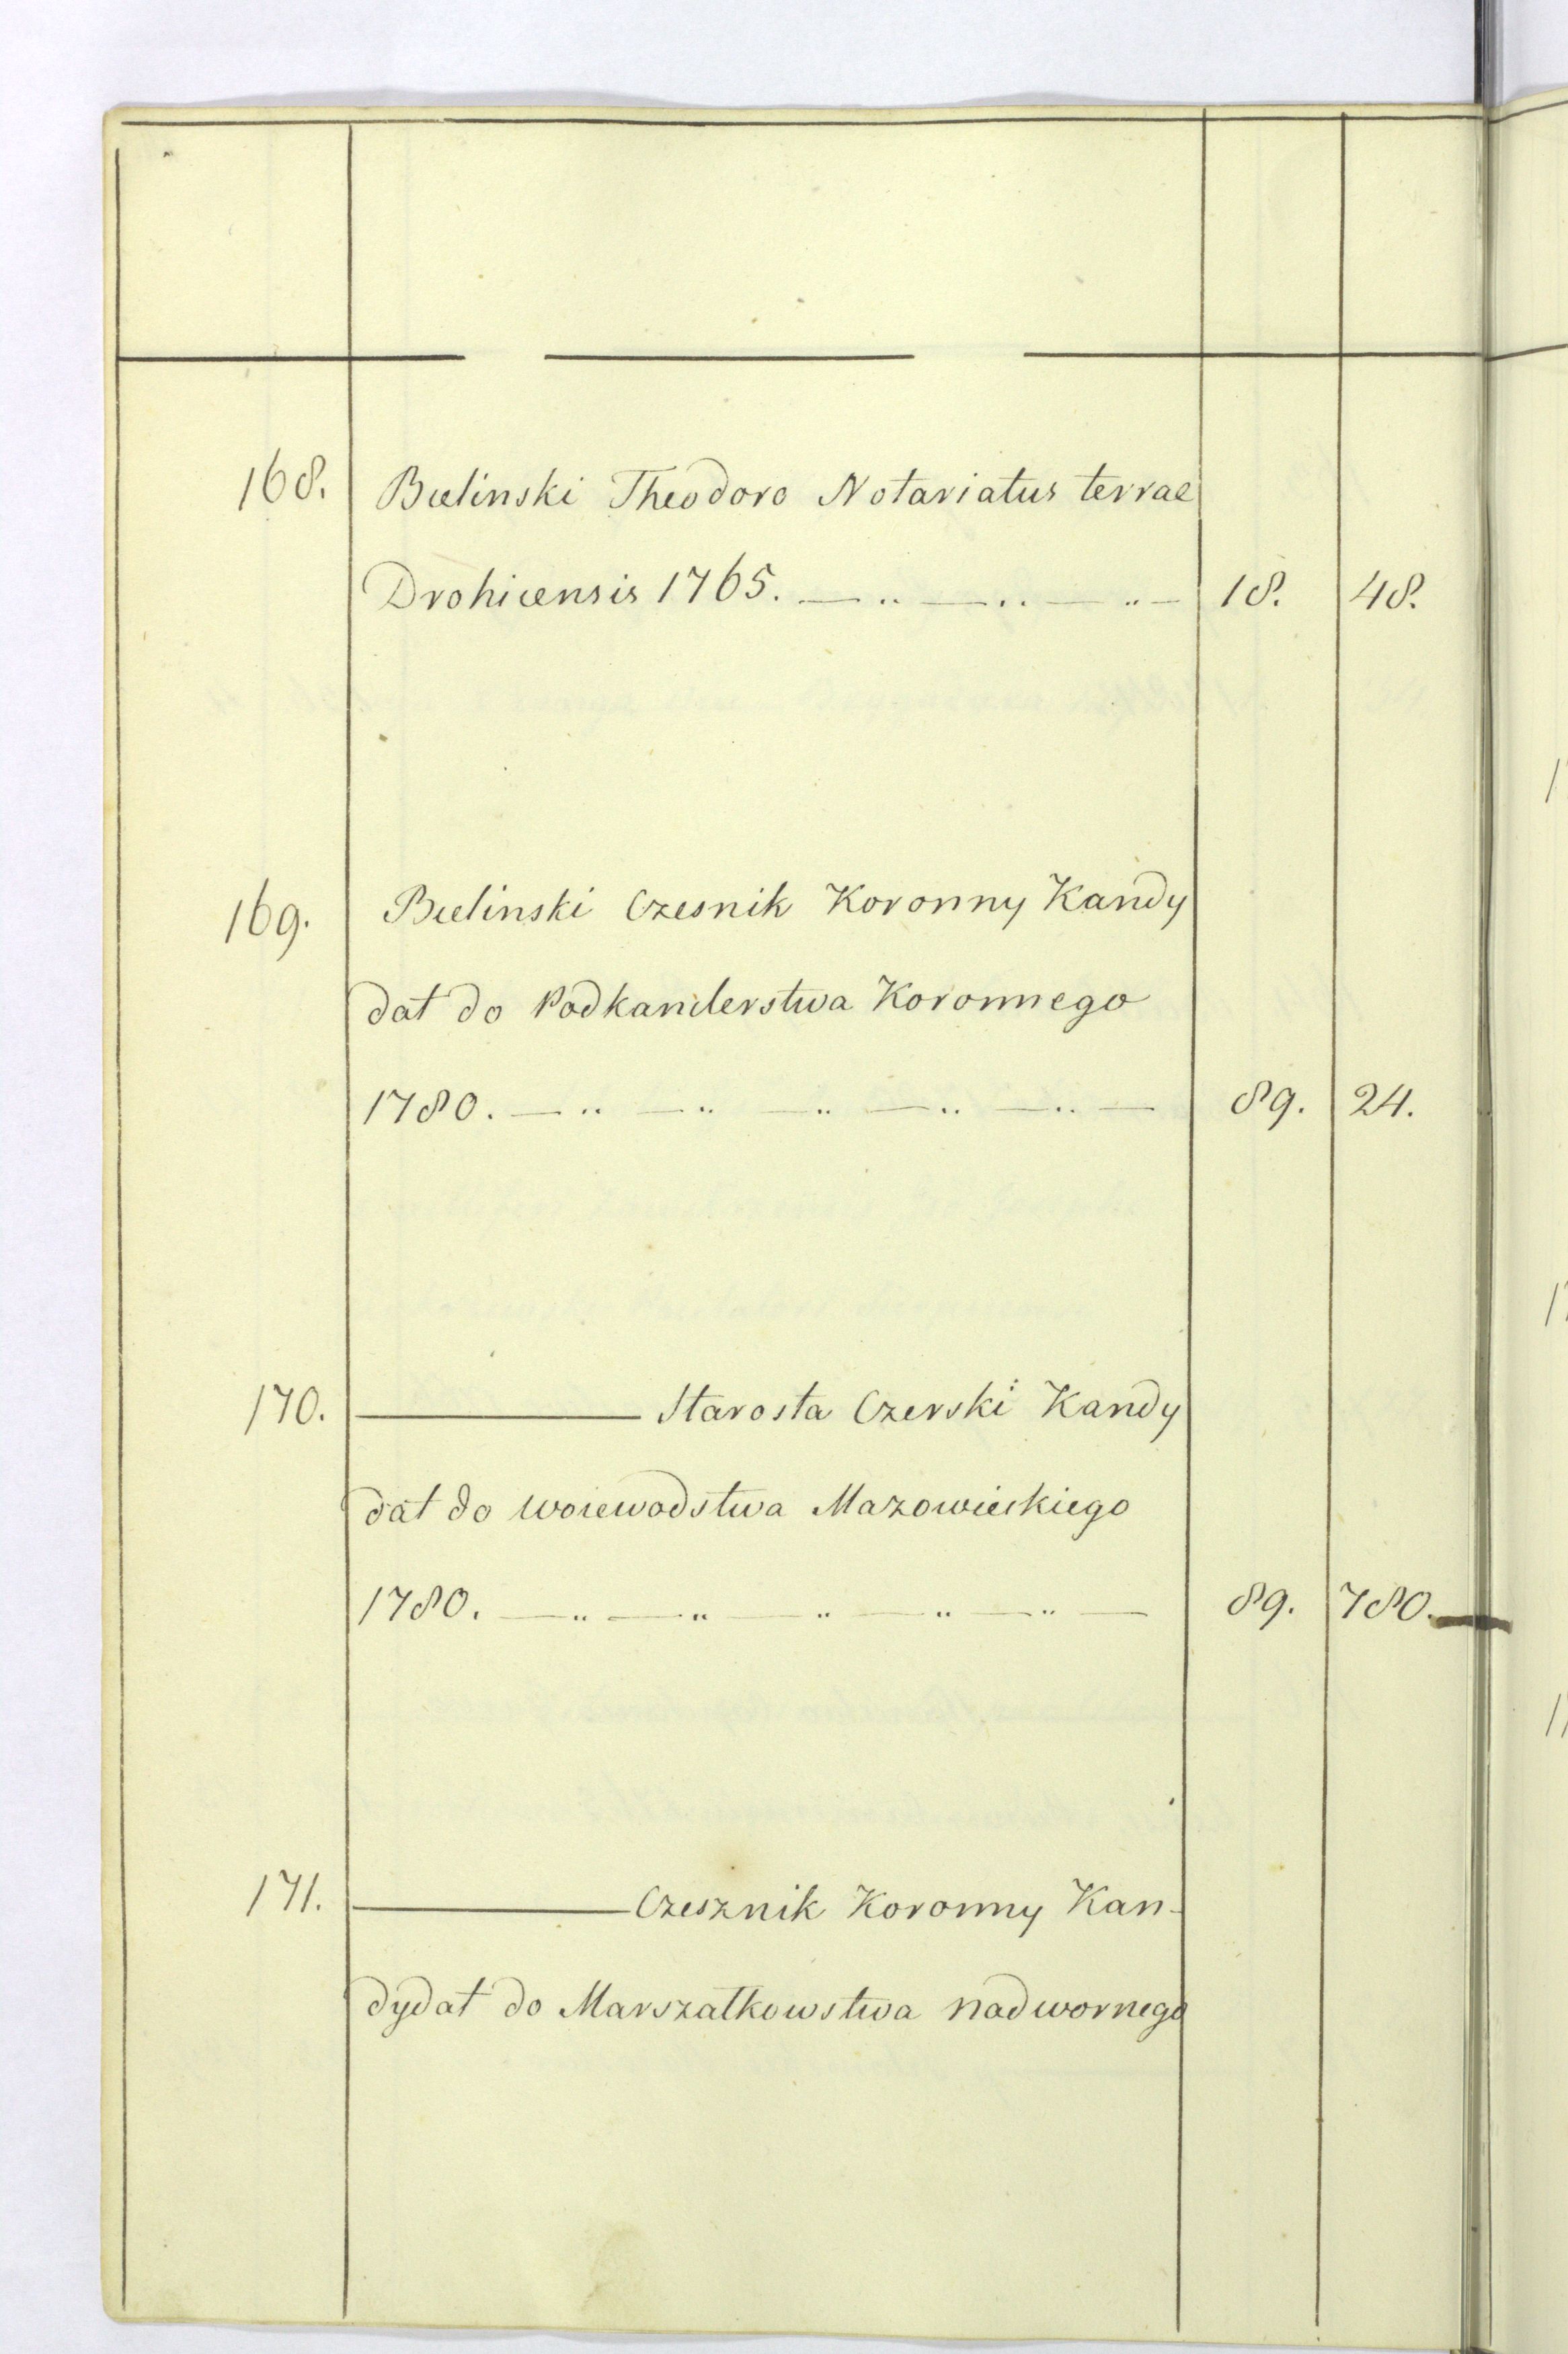 168. Bielinski Theodoro Notariatus terrae
Drohicensis 1765. — .. — .. — .. — 18. 48.
169. Bielinski Czesnik Koronny Kandy
dat do Podkanclerstwa Koronnego
1780. — .. — .. — .. — .. — .. — 89. 24.
170. ——— Starosta Czerski Kandy
dat do Woiewodstwa Mazowieckiego
1780. — .. — .. — .. — .. — .. — 89. 780.
171. ——— Czesznik Koronny Kan-
dydat do Marszałkowstwa nadwornego